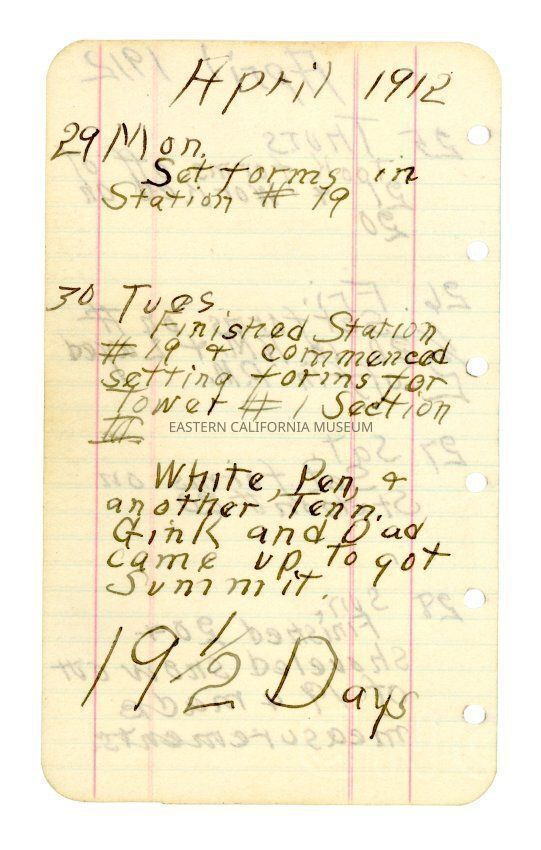 April 1912
29 Mon.
Set forms in
Station # 19
30 Tues
Finished Station
# 19 & commenced
setting forms for
Tower # 1 Section
III
EASTERN CALIFORNIA MUSEUM
White, Pen, &
another Tenn.
Gink and Dad
came up to got
Summit.
19 1/2 Days